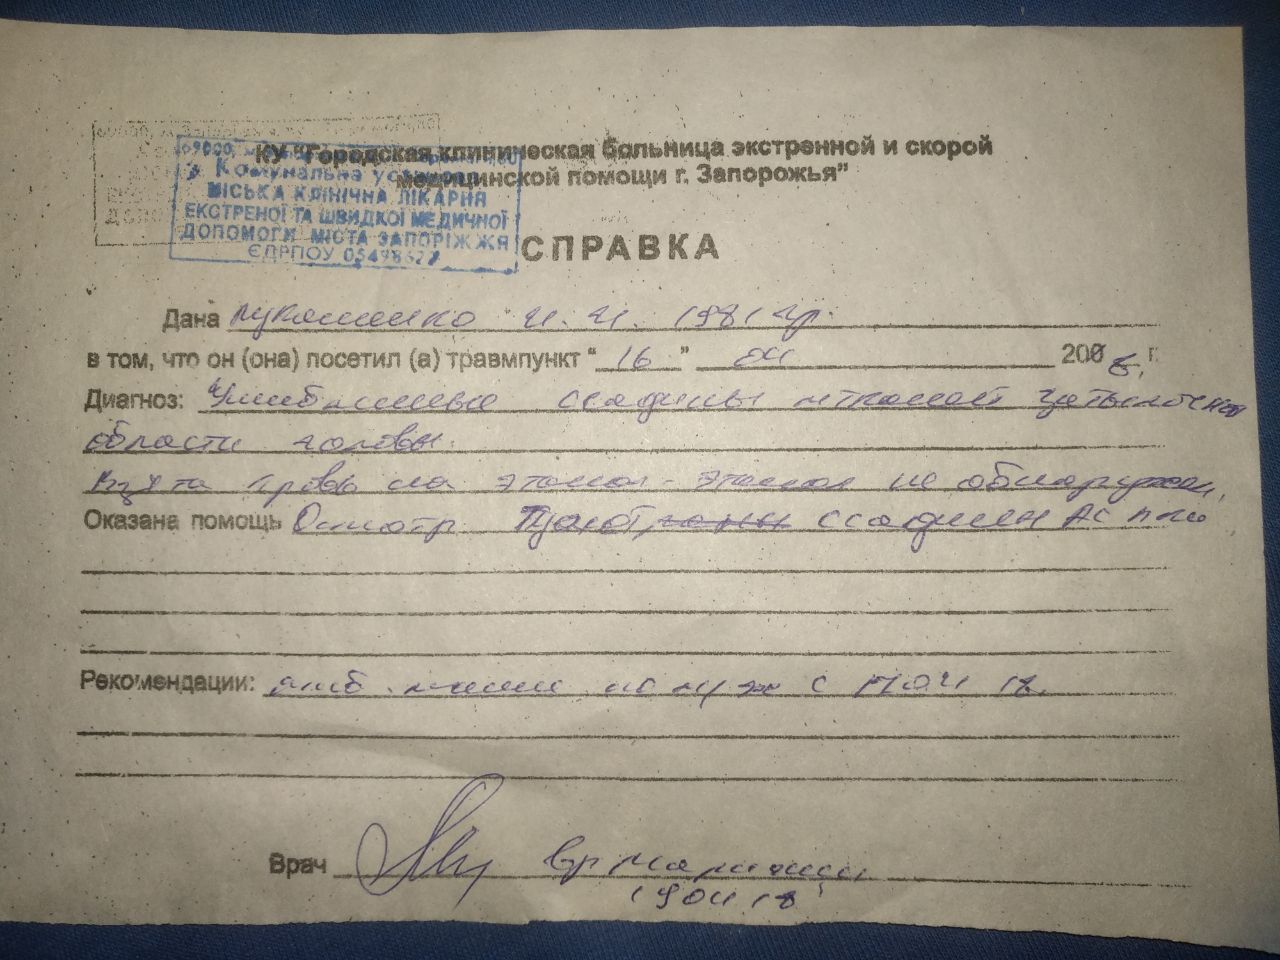 КУ "Городская клиническая больница экстренной и скорой
медицинской помощи г. Запорожья"
69000,
Комунальна установа
МІСЬКА КЛІНІЧНА ЛІКАРНЯ
ЕКСТРЕНОЇ ТА ШВИДКОЇ МЕДИЧНОЇ
ДОПОМОГИ МІСТА ЗАПОРІЖЖЯ
ЄДРПОУ
СПРАВКА
Дана И. И. 1981 гр.
в том, что он (она) посетил (а) травмпункт "16" 04 200 г.
Диагноз: Ушибленные ссадины м тканей затылочной
области головы.
Взята кровь на этанол - этанол не обнаружен.
Оказана помощь Осмотр. ссадин Ас
Рекомендации: амб. с 17 04 18.
Врач вр
19 04 18